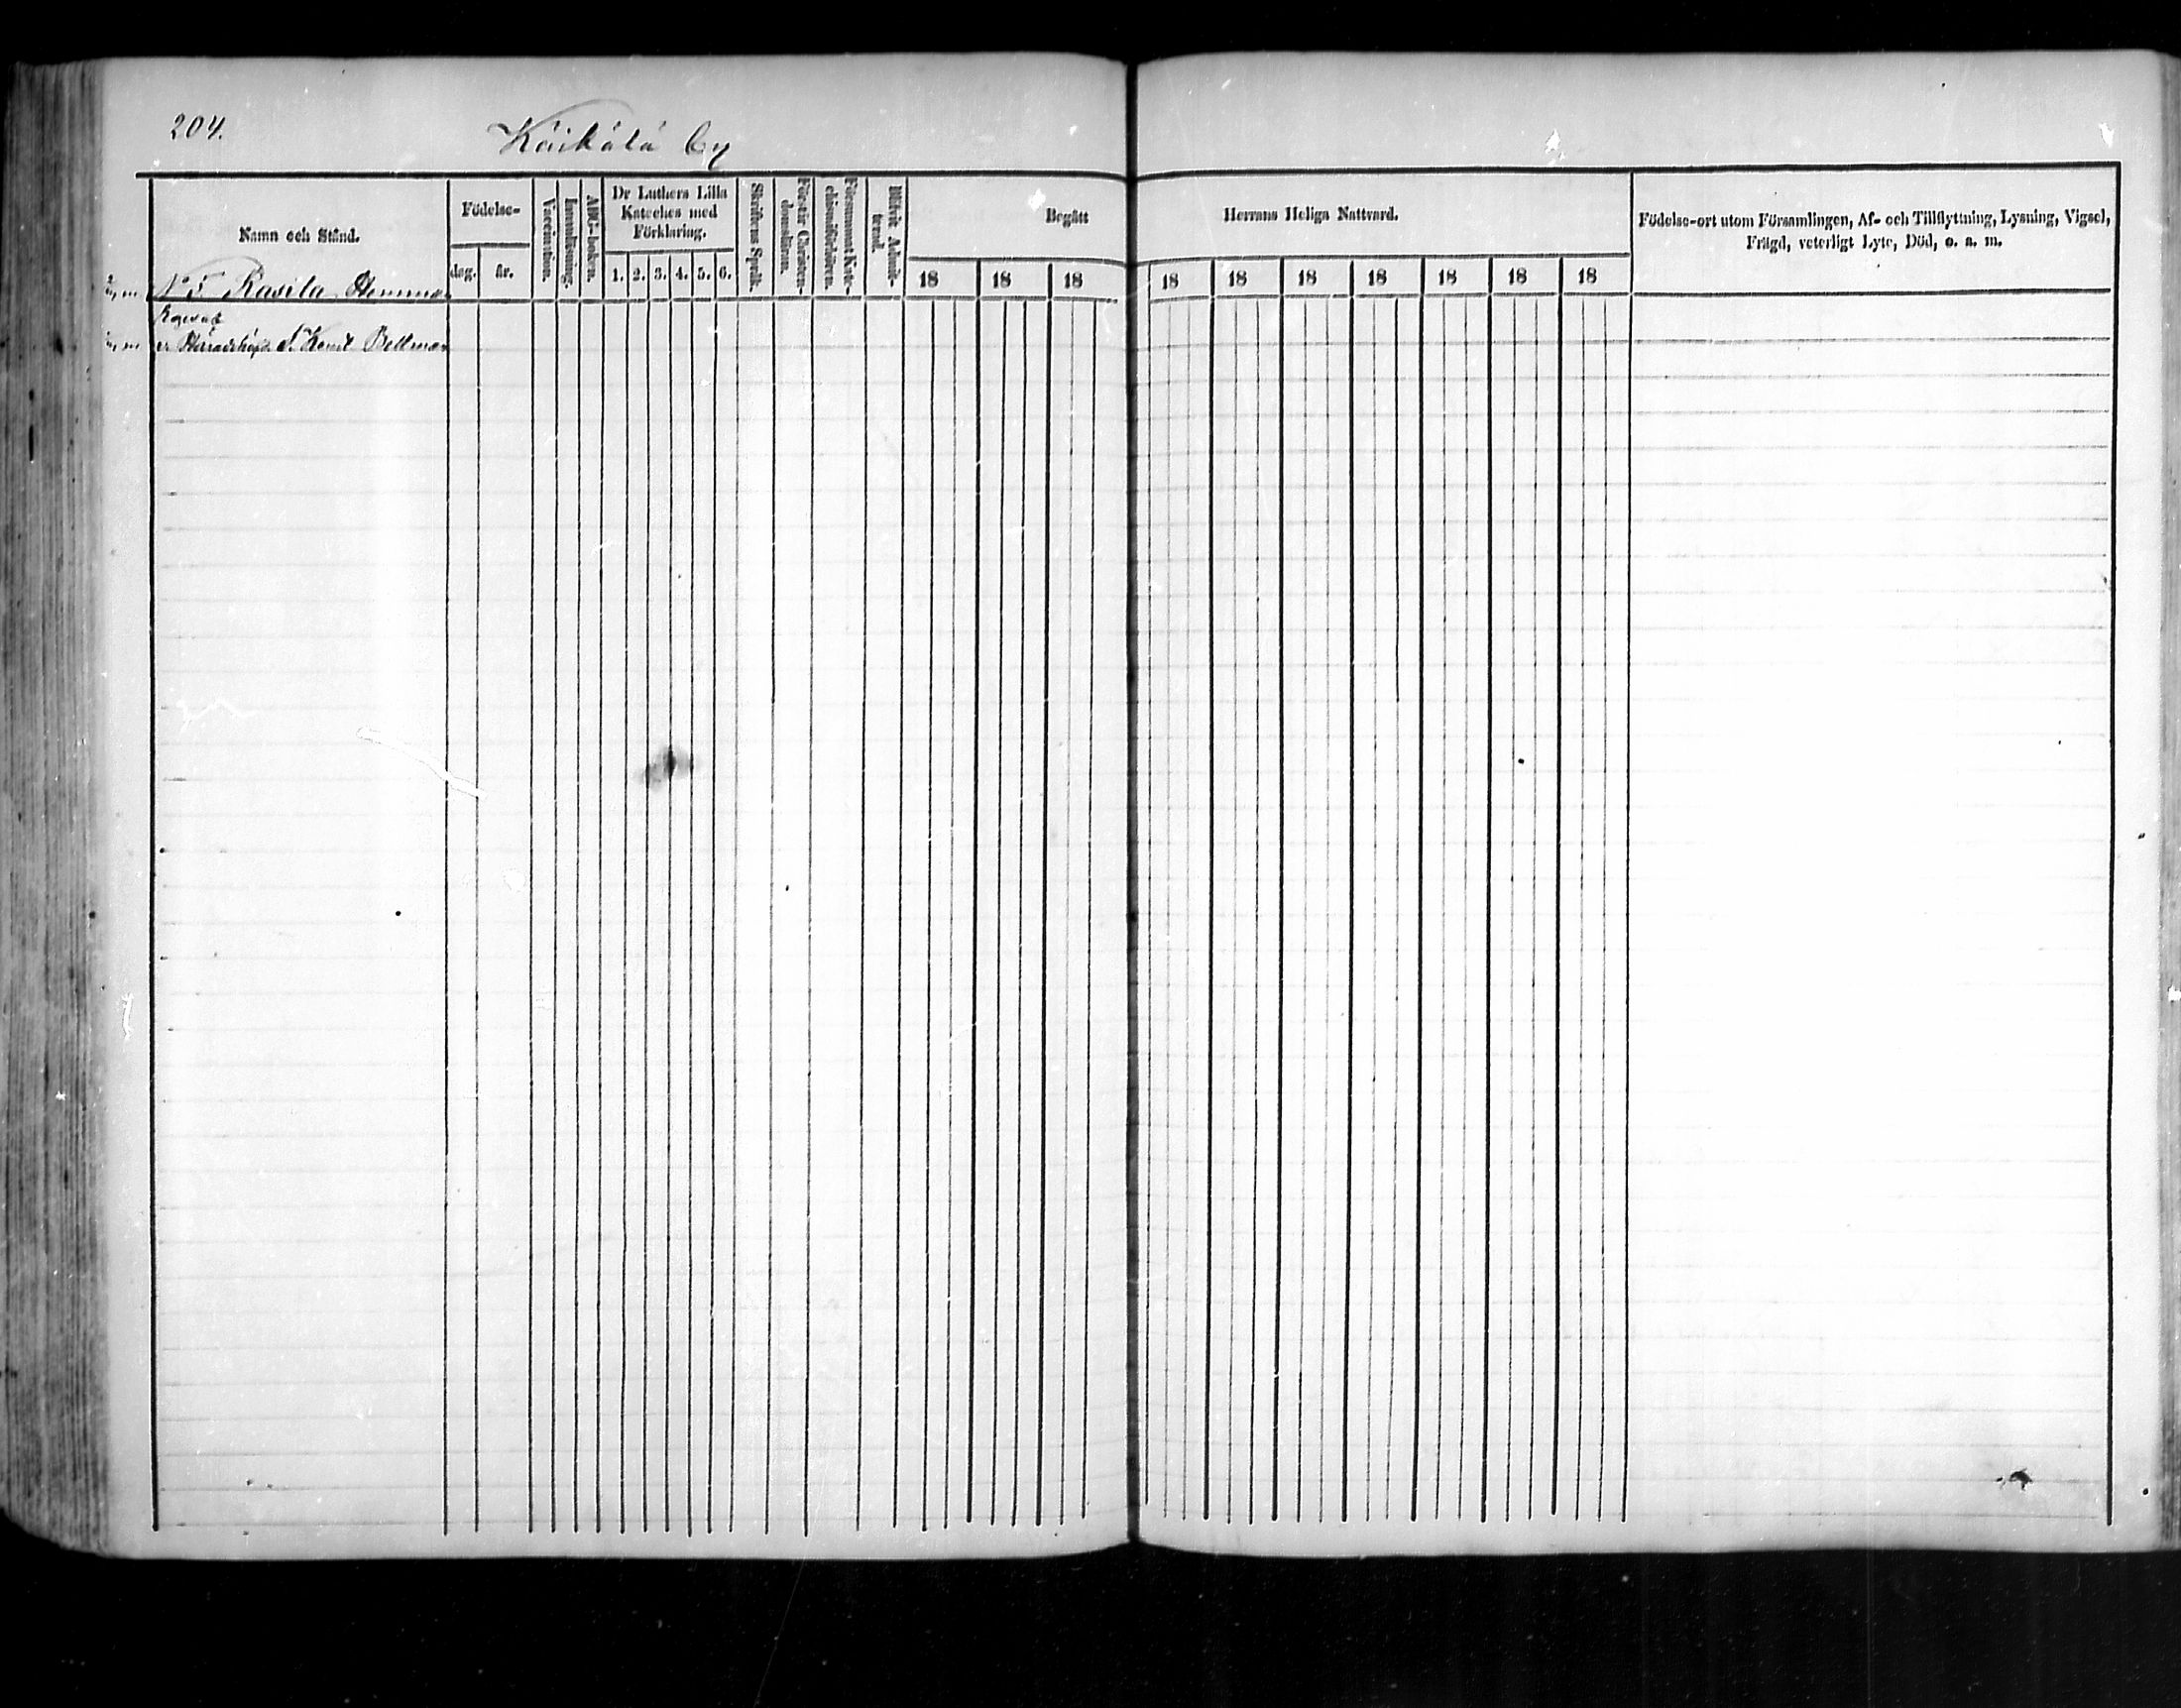 204.
Käikälä by
Namn och Stånd.
Födelse-
dag. år.
Vaccination.
Innanläsning.
ABC-boken.
Dr Luthers Lilla
Kateches med
Förklaring.
1. 2. 3. 4. 5. 6.
Skriftens Språk.
Förstår Christen-
domsläran.
Försummat Kate-
chismiförhören.
Blifvit Admit-
terad.
Begått Herrans Heliga Nattvard.
18 18 18 18 18 18 18 18 18 18
Födelse-ort utom Församlingen, Af- och Tillflyttning, Lysning, Vigsel,
Frägd, veterligt Lyte, Död, o. s. m.
No 5. Rasila Hemman
Bellman